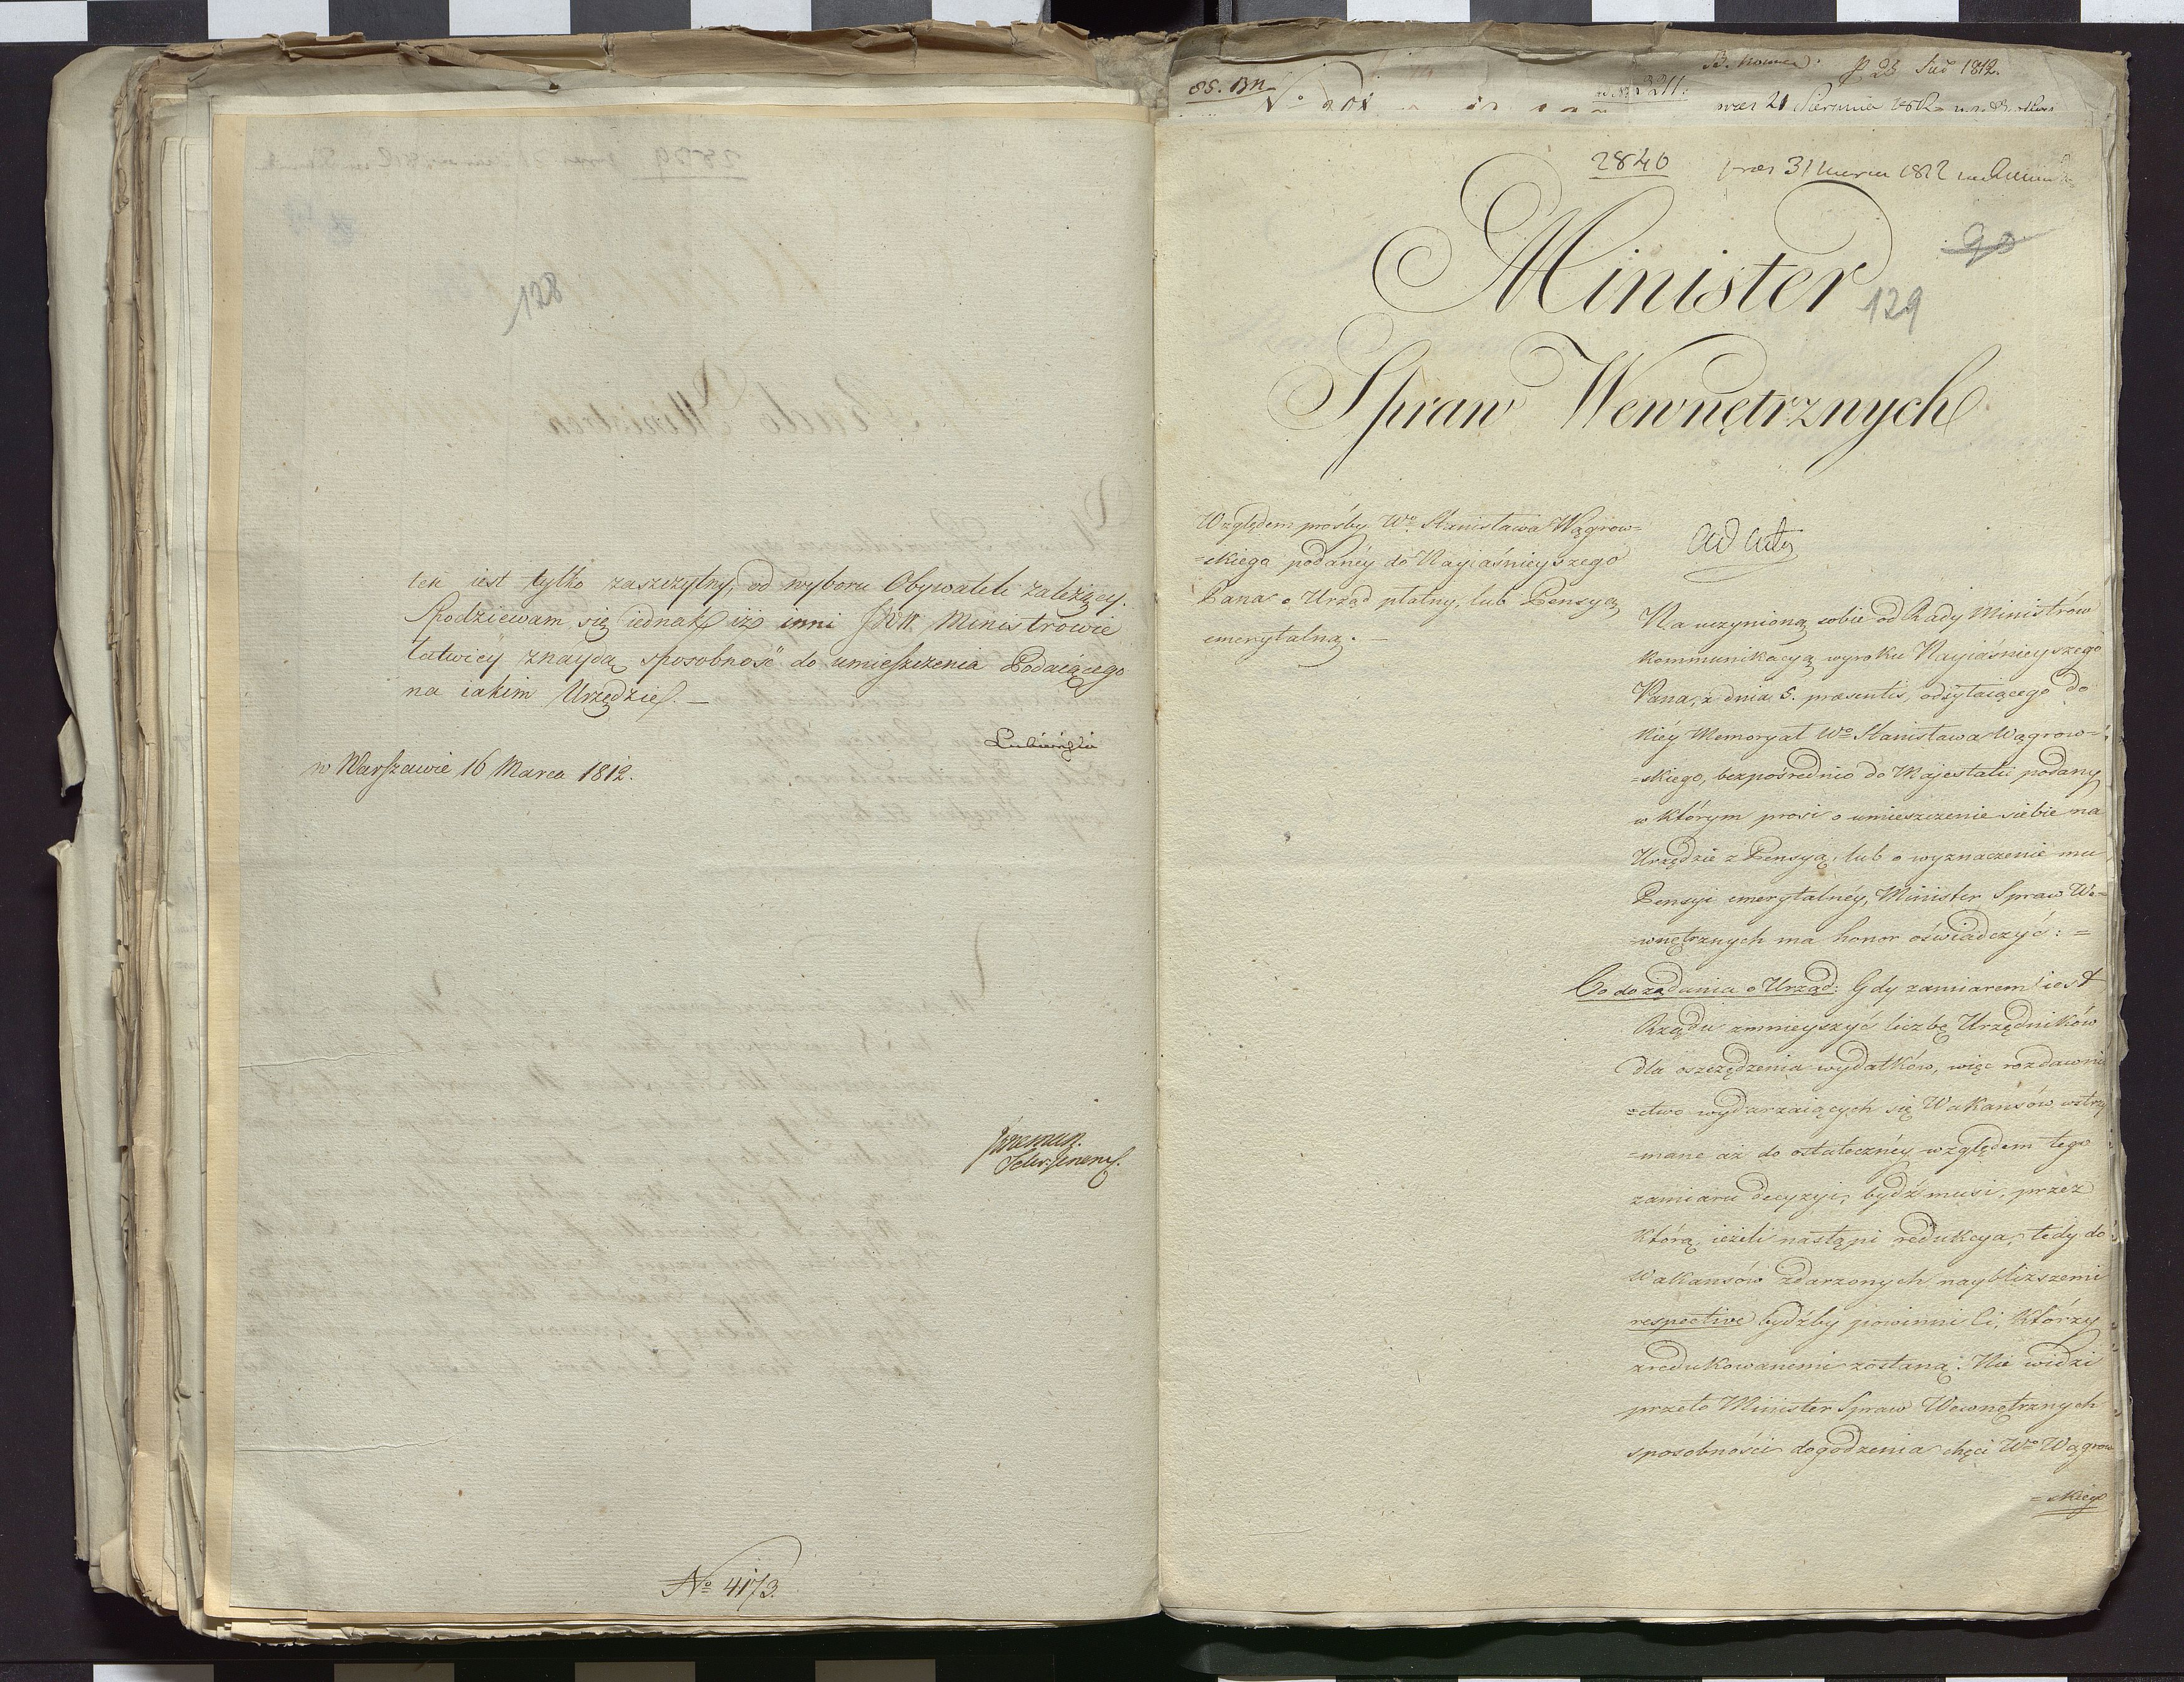 128
ten iest tylko zaszczytny, od wyboru Obywateli zależący.
Spodziewam się iednak iż inni JWW. Ministrowie
łatwiéy znaydą sposobność do umieszczenia Podaiącego
na iakim Urzędzie. —
Lubieński
w Warszawie 16 Marca 1812.
Sekr: Jener.
No 4173.
3211.
P. 23 1812.
21 Sierpnia
2840
31 Marca 1812
90
Minister
129
Spraw Wewnętrznych
Względem prośby Wo Stanisława Wągrow=
=skiego podanéy do Nayiaśnieyszego
Pana o Urząd płatny, lub Pensyą
emerytalną. —
ad acta
Na uczynioną sobie od Rady Ministrów
kommunikacyą wyroku Nayiaśnieyszego
Pana, z dnia 5. praesentis, odsyłaiącego do
Niéy Memoryał Wo Stanisława Wągrow=
=skiego, bezpośrednio do Majestatu podany
w którym prosi o umieszczenie siebie na
Urzędzie z Pensyą, lub o wyznaczenie mu
Pensyi emerytalnéy, Minister Spraw We=
=wnętrznych ma honor oświadczyć: =
Co do żądania o Urząd: Gdy zamiarem iest
Rządu zmnieyszyć liczbę Urzędników
dla oszczędzenia wydatków, więc rozdawni
=ctwo wydarzaiących się Wakansów wstrzy
=mane aż do ostatecznéy względem tego
zamiaru decyzyi, bydź musi, przez
którą, ieżeli nastąpi redukcya, tedy do
Wakansów zdarzonych naybliższemi
respective bydźby powinni Ci, którzy
zredukowanemi zostaną. Nie widzi
przeto Minister Spraw Wewnętrznych
sposobności dogodzenia chęci Wo Wągrow
=skiego